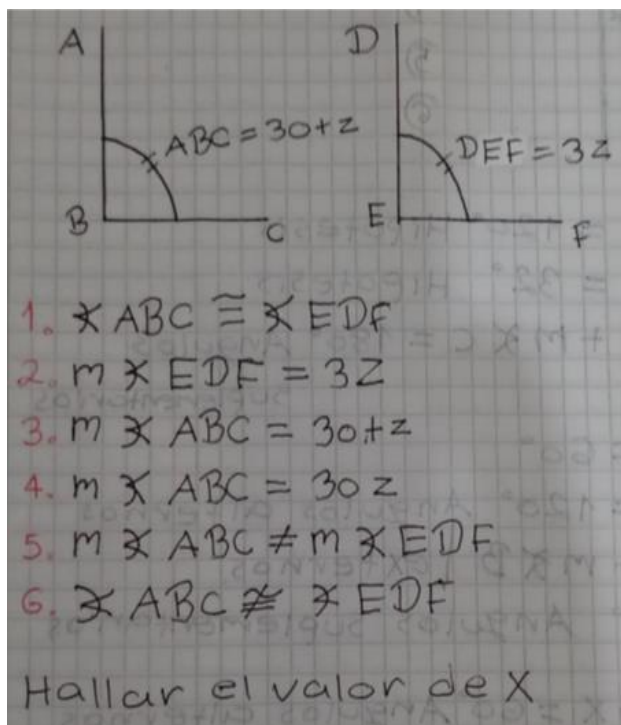 A D
ABC = 30 + z DEF = 3z
B C E F
1. ∢ ABC ≅ ∢ EDF
2. m ∢ EDF = 3z
3. m ∢ ABC = 30 + z
4. m ∢ ABC = 30 z
5. m ∢ ABC ≠ m ∢ EDF
6. ∢ ABC ≇ ∢ EDF
Hallar el valor de X